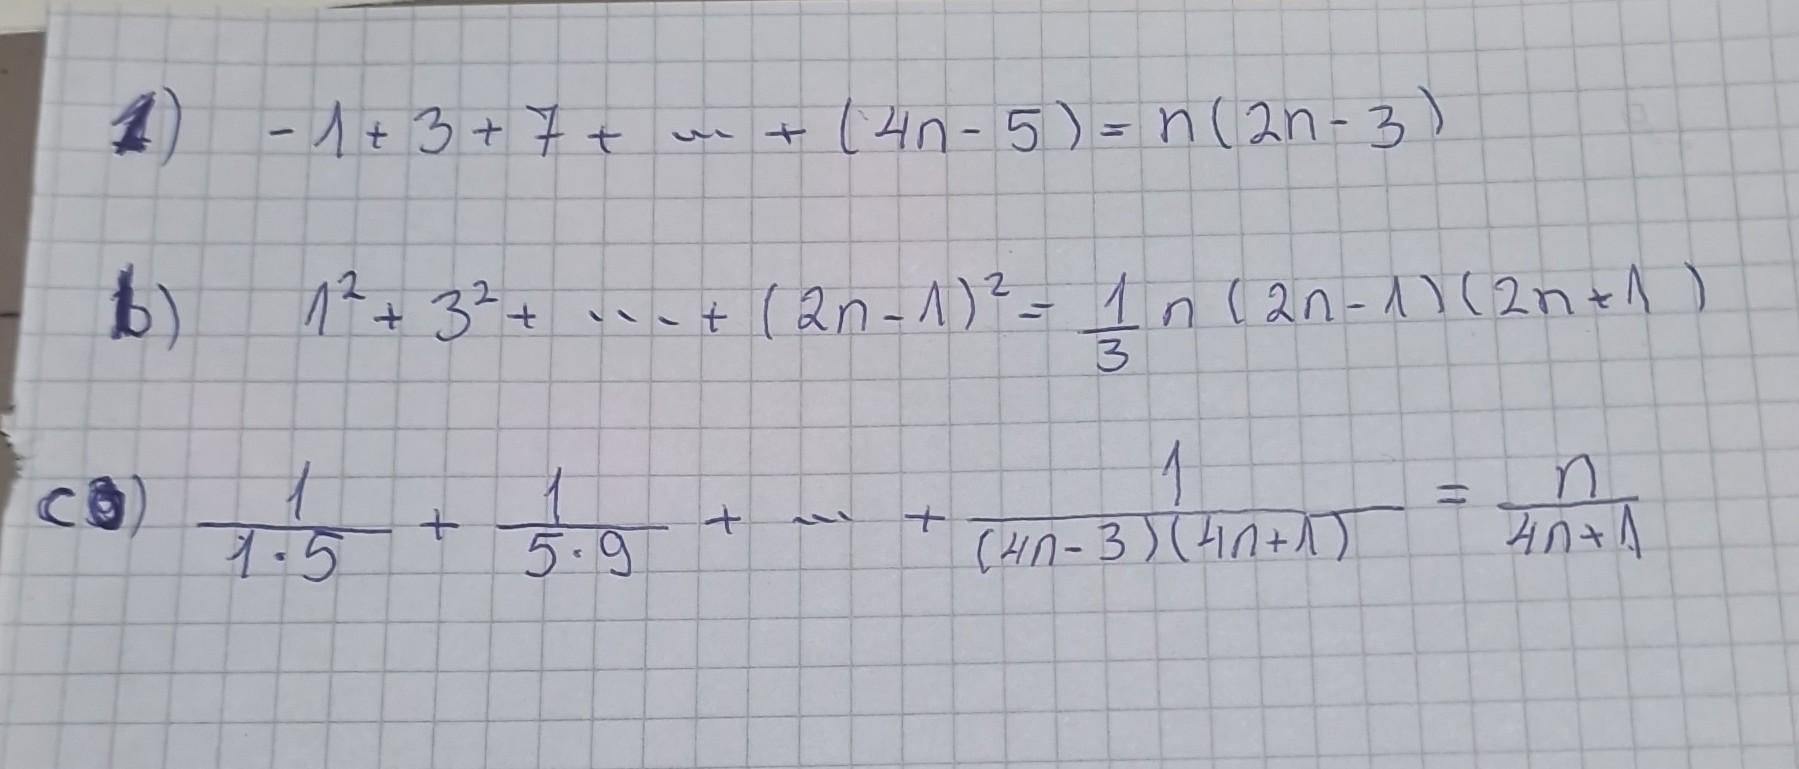 1) -1 + 3 + 7 + ... + (4n - 5) = n(2n - 3)
b) 1² + 3² + ... + (2n - 1)² = 1/3 n (2n - 1)(2n + 1)
c) 1/(1·5) + 1/(5·9) + ... + 1/((4n - 3)(4n + 1)) = n/(4n + 1)